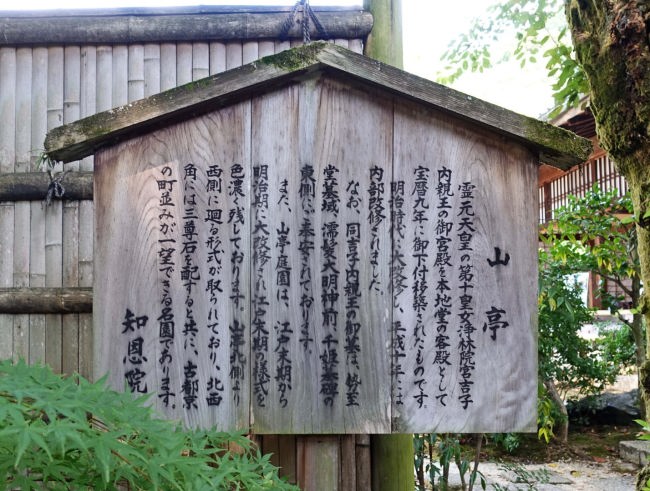 山亭
霊元天皇の第十皇女浄林院宮吉子
内親王の御宮殿を本地堂の客殿として
宝暦九年に御下付移築されたものです。
明治時代に大改修し、平成十年には
内部改修されました。
なお、同吉子内親王の御墓は、勢至
堂墓域、濡髪大明神前、千姫墓碑の
東側にご奉安されております。
また、山亭庭園は、江戸末期から
明治期に大改修され江戸末期の様式を
色濃く残しております。山亭北側より
西側に廻る形式が取られており、北西
角には三尊石を配すると共に、古都京
の町並みが一望できる名園であります。
知恩院